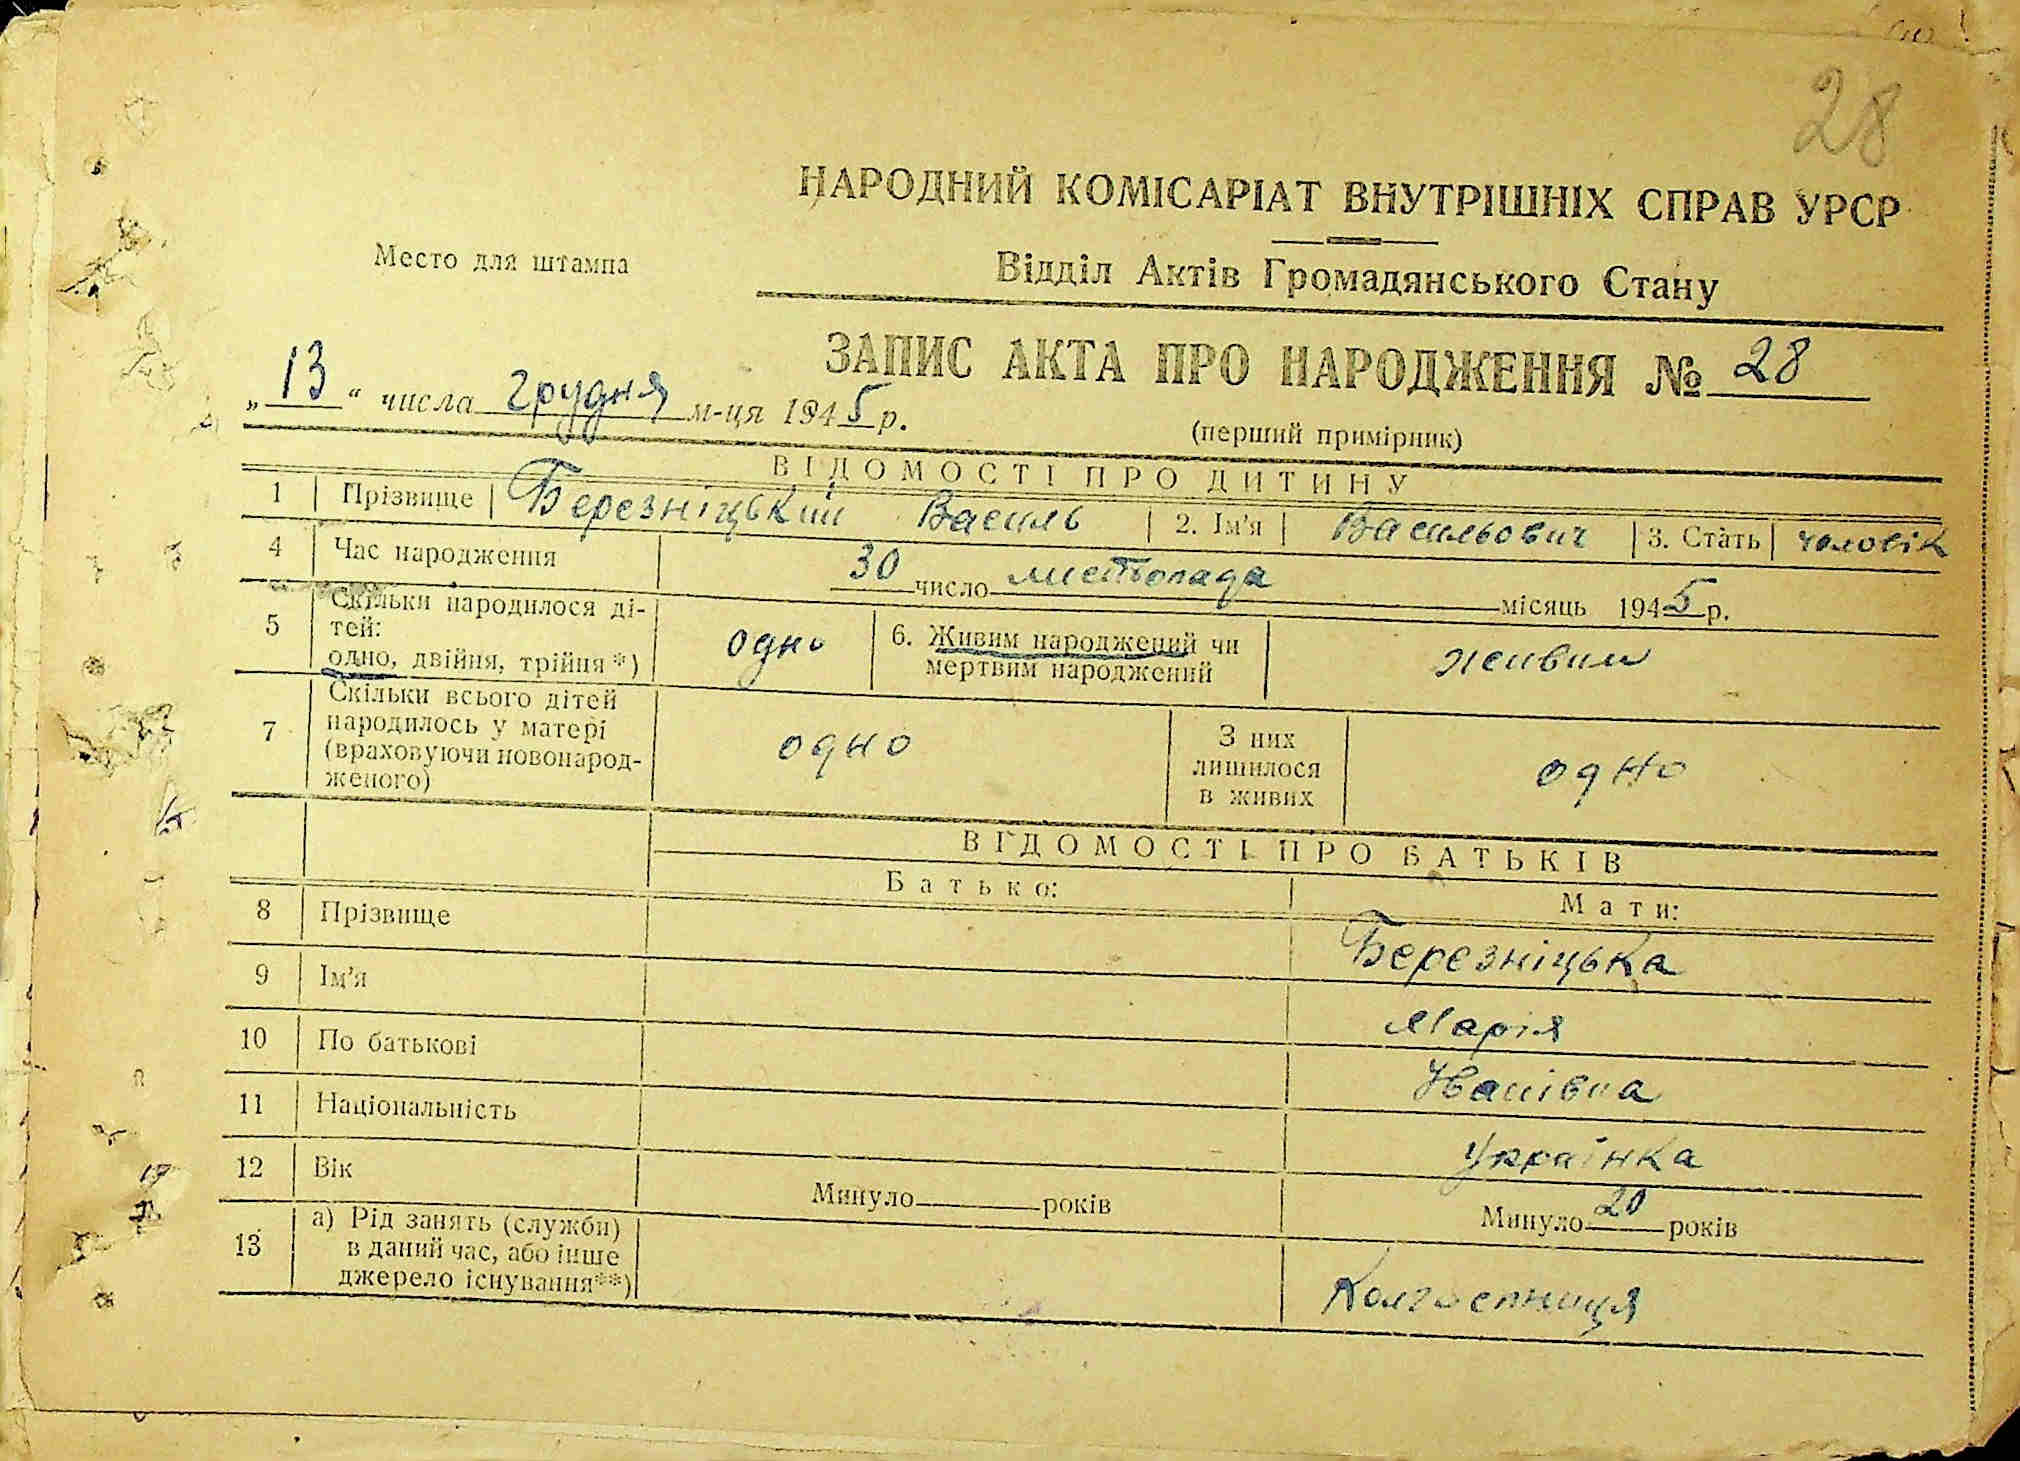 28
НАРОДНИЙ КОМІСАРІАТ ВНУТРІШНІХ СПРАВ УРСР
Место для штампа
Відділ Актів Громадянського Стану
ЗАПИС АКТА ПРО НАРОДЖЕННЯ № 28
„13“ числа грудня м-ця 1945 р.
(перший примірник)
ВІДОМОСТІ ПРО ДИТИНУ
1 Прізвище Березніцький Василь 2. Ім'я Васильович 3. Стать чоловік
4 Час народження 30 число листопада місяць 1945 р.
5 Скільки народилося ді-
тей:
одно, двійня, трійня*) одно 6. Живим народжений чи
мертвим народжений живим
7 Скільки всього дітей
народилось у матері
(враховуючи новонарод-
женого) одно З них
лишилося
в живих одно
ВІДОМОСТІ ПРО БАТЬКІВ
Батько: Мати:
8 Прізвище Березніцька
9 Ім'я Марія
10 По батькові Іванівна
11 Національність Українка
12 Вік Минуло років Минуло 20 років
13 а) Рід занять (служби)
в даний час, або інше
джерело існування**) Колгоспниця